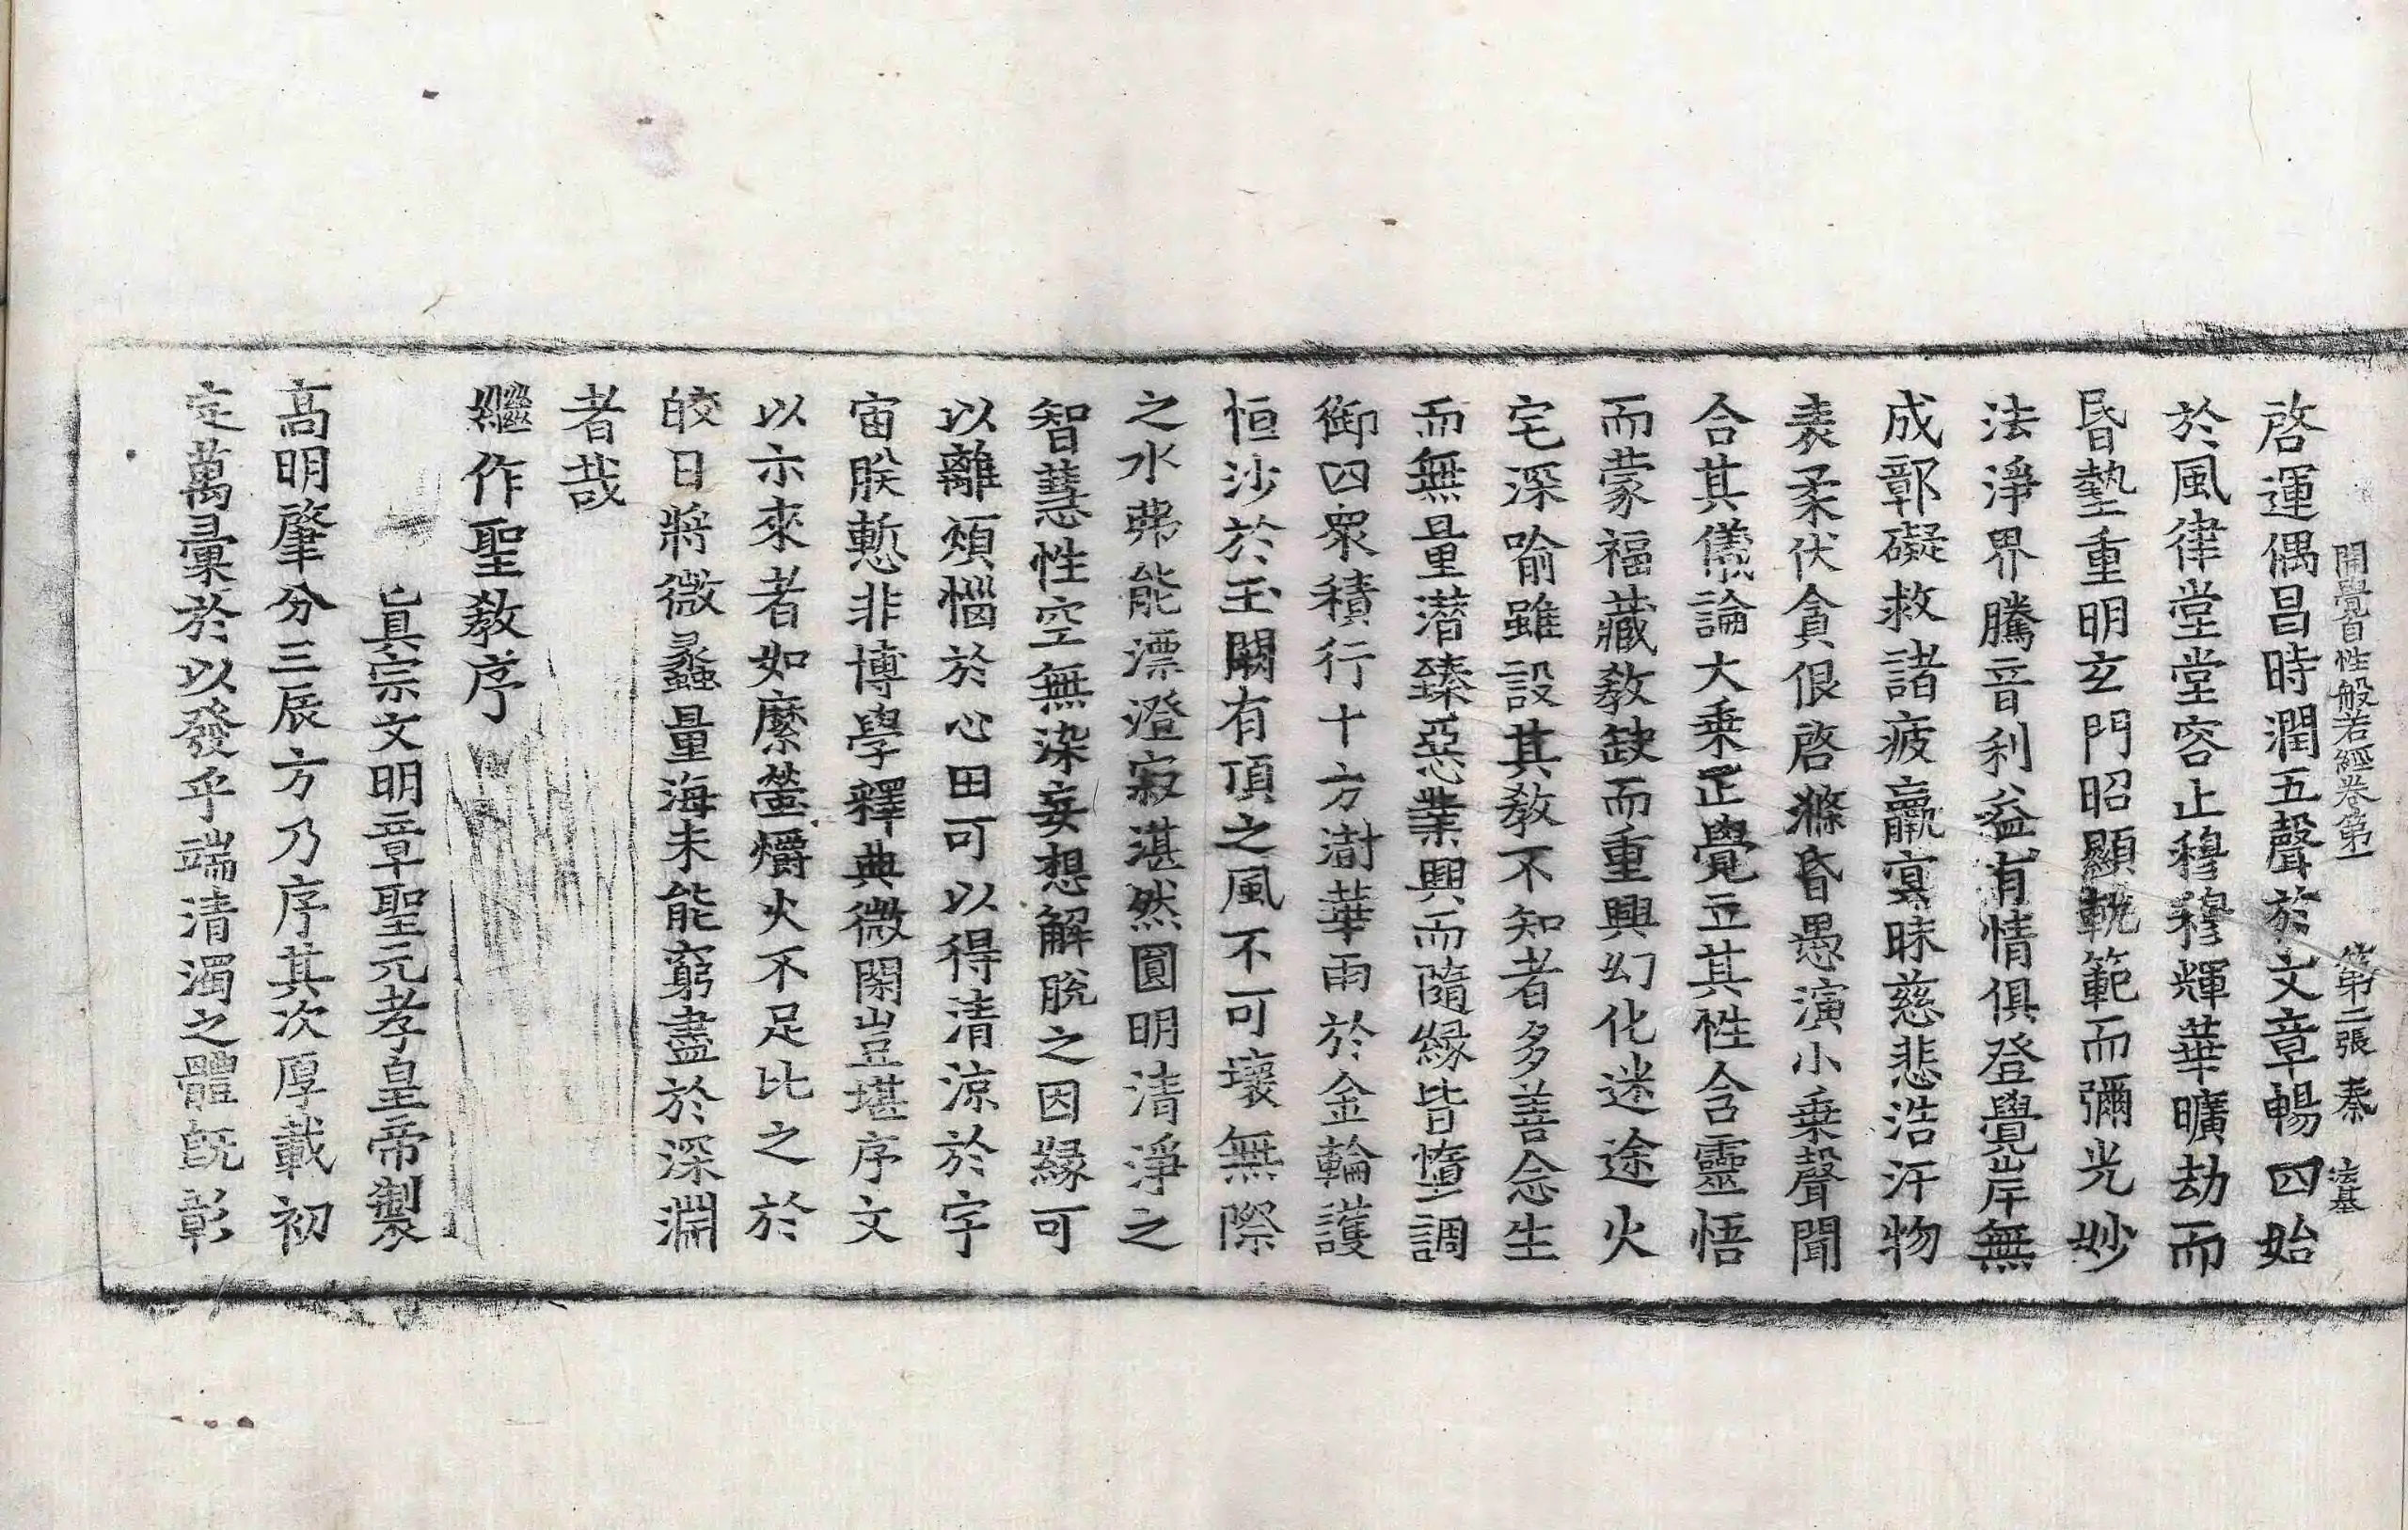 開覺自性般若經卷第一 第二張 秦 法基
啓運偶昌時潤五聲於文章暢四始
於風律堂堂容止穆穆輝華曠劫而
昏墊重明玄門昭顯軌範而彌光妙
法淨界騰音利益有情俱登覺岸無
成鄣礙救諸疲羸寘昧慈悲浩汗物
表柔伏貪佷啓滌昏愚演小乗聲聞
合其儀論大乗正覺立其性含靈悟
而蒙福藏教缺而重興幻化迷途火
宅深喻雖設其教不知者多善念生
而無量潜臻惡業興而隨緣皆墮調
御四衆積行十方澍華雨於金輪護
恒沙於玉闕有頂之風不可壞無際
之水弗能漂澄寂湛然圓明清淨之
智慧性空無染妄想解脫之因緣可
以離煩惱於心田可以得清涼於宇
宙朕慙非博學釋典微閑豈堪序文
以示來者如縻螢爝火不足比之於
皎日將微蠡量海未能窮盡於深淵
者哉
繼作聖教序
真宗文明章聖元孝皇帝製
高明肇分三辰方乃序其次厚載初
定萬彙於以發乎端清濁之體旣彰